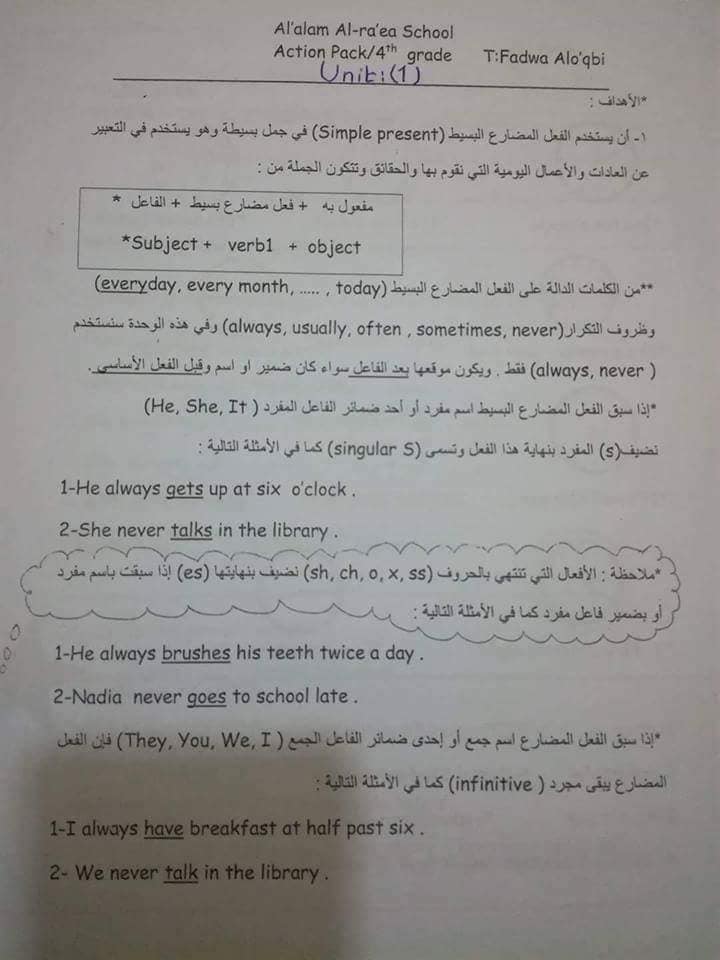 Al'alam Al-ra'ea School
Action Pack/4th grade T:Fadwa Alo'qbi
Unit:(1)
*الأهداف :
١- أن يستخدم الفعل المضارع البسيط (Simple present) في جمل بسيطة وهو يستخدم في التعبير
عن العادات والأعمال اليومية التي نقوم بها والحقائق وتتكون الجملة من :
* الفاعل + فعل مضارع بسيط + مفعول به
*Subject + verb1 + object
**من الكلمات الدالة على الفعل المضارع البسيط (everyday, every month, ..... , today)
وظروف التكرار(always, usually, often , sometimes, never) وفي هذه الوحدة سنستخدم
(always, never ) فقط . ويكون موقعها بعد الفاعل سواء كان ضمير او اسم وقبل الفعل الأساسي .
*إذا سبق الفعل المضارع البسيط اسم مفرد أو أحد ضمائر الفاعل المفرد (He, She, It )
نضيف(s) المفرد بنهاية هذا الفعل وتسمى (singular S) كما في الأمثلة التالية :
1-He always gets up at six o'clock .
2-She never talks in the library .
*ملاحظة : الأفعال التي تنتهي بالحروف (sh, ch, o, x, ss) نضيف بنهايتها (es) إذا سبقت باسم مفرد
أو بضمير فاعل مفرد كما في الأمثلة التالية :
1-He always brushes his teeth twice a day .
2-Nadia never goes to school late .
*إذا سبق الفعل المضارع اسم جمع أو إحدى ضمائر الفاعل الجمع (They, You, We, I ) فإن الفعل
المضارع يبقى مجرد (infinitive ) كما في الأمثلة التالية :
1-I always have breakfast at half past six .
2- We never talk in the library .